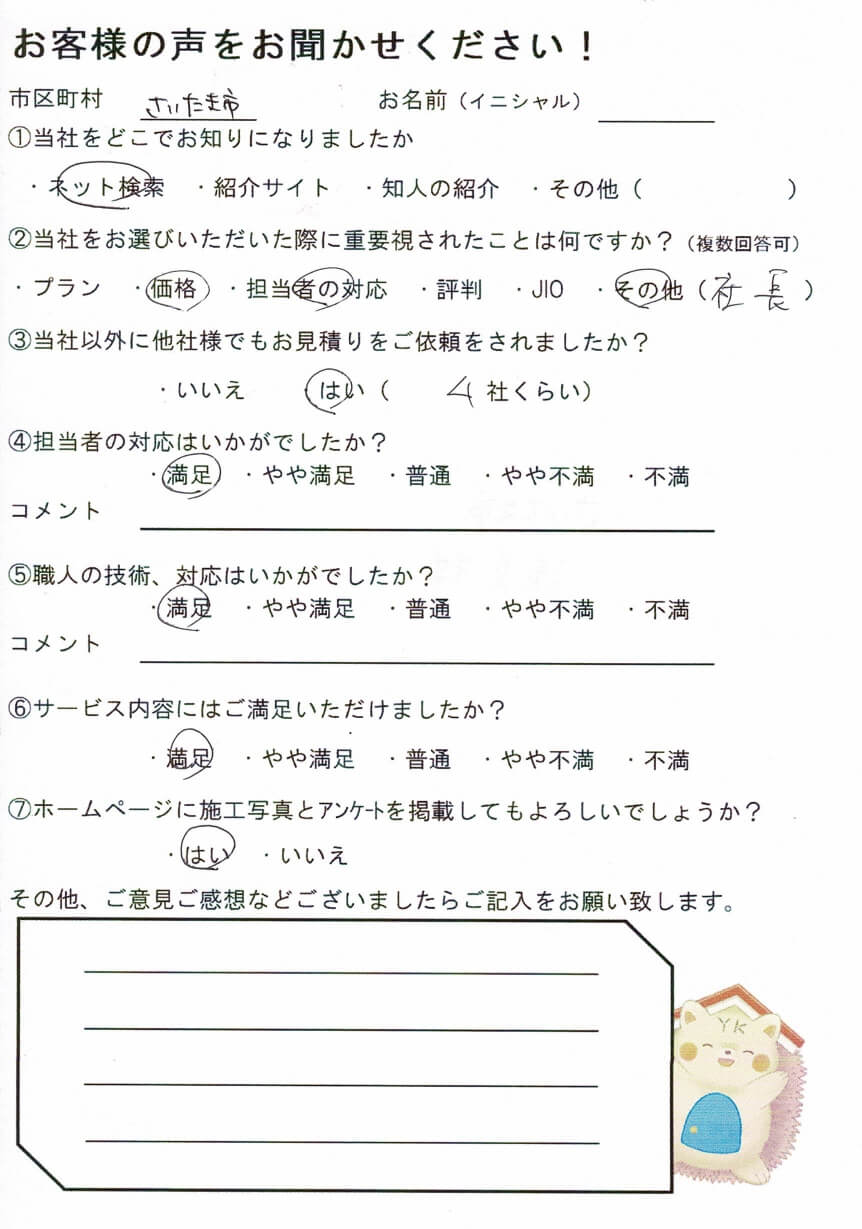 お客様の声をお聞かせください！
市区町村 さいたま市 お名前（イニシャル）
①当社をどこでお知りになりましたか
・ネット検索 ・紹介サイト ・知人の紹介 ・その他（ ）
②当社をお選びいただいた際に重要視されたことは何ですか？（複数回答可）
・プラン ・価格 ・担当者の対応 ・評判 ・JIO ・その他（社長）
③当社以外に他社様でもお見積りをご依頼をされましたか？
・いいえ ・はい（ 4 社くらい）
④担当者の対応はいかがでしたか？
・満足 ・やや満足 ・普通 ・やや不満 ・不満
コメント
⑤職人の技術、対応はいかがでしたか？
・満足 ・やや満足 ・普通 ・やや不満 ・不満
コメント
⑥サービス内容にはご満足いただけましたか？
・満足 ・やや満足 ・普通 ・やや不満 ・不満
⑦ホームページに施工写真とアンケートを掲載してもよろしいでしょうか？
・はい ・いいえ
その他、ご意見ご感想などございましたらご記入をお願い致します。
YK